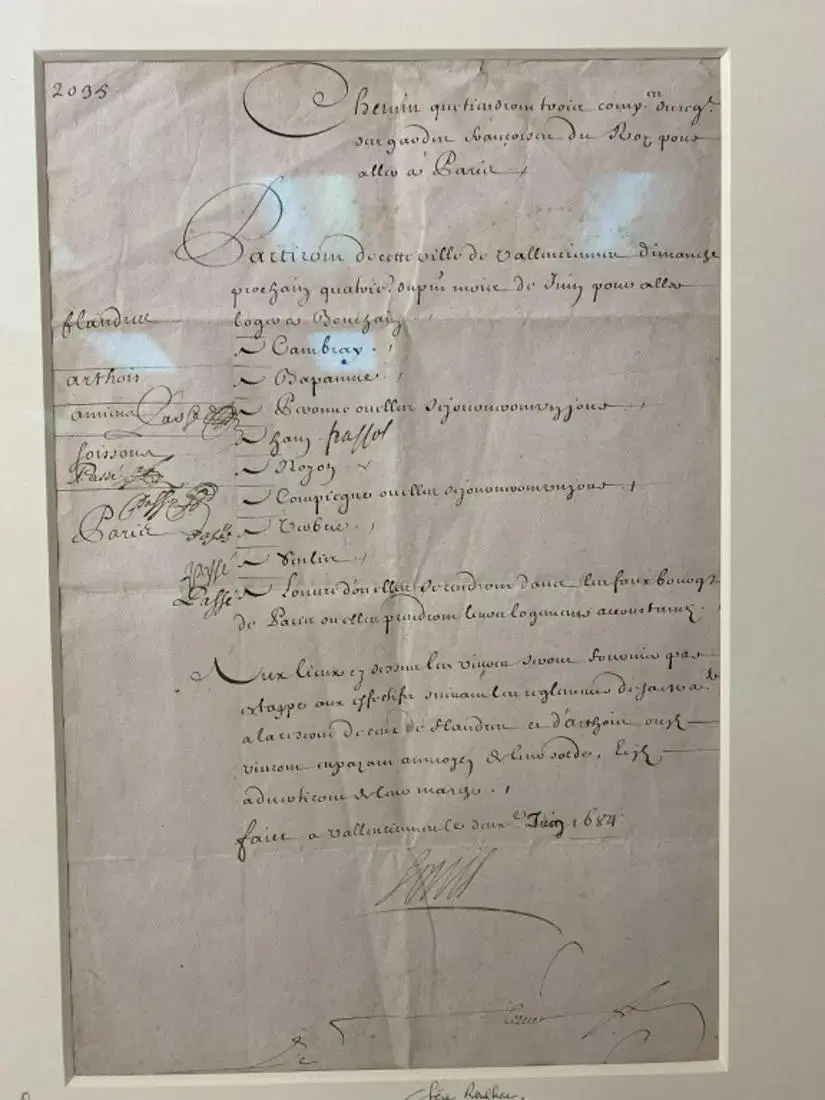 2035
Chemin que tiendront trois comp.en du reg.t
des gardes francoises du Roy pour
aller à Paris
Partiront de cette ville de Vallenciennes dimanche
prochain quatrie.e du pnt mois de Juin pour aller
flandres
loger a Bouchain
A Cambray
arthois
A Bapaume
amiens Passé
A Peronne ou elles sejourneront un jour
soissons
A ham passé
Passé
A Noyon
passé
A Compiegne ou elles sejourneront un jour
Paris passé
A Verberie
passé
A Senlis
Passé
A Louvre d'ou elles se rendront dans les faux bourgs
de Paris ou elles prendront leurs logemens accoustumez
Aux lieux cy dessus les vivres seront fournis par
estappe aux effectifs suivant les reglemens de sa Ma.té
a la reserve de ceux de Flandres et d'arthois ou ilz
vivront en payant au moyen de leur solde, Et ilz
a de leur marche
faict a Vallenciennes le deux.e Juin 1684
Louis